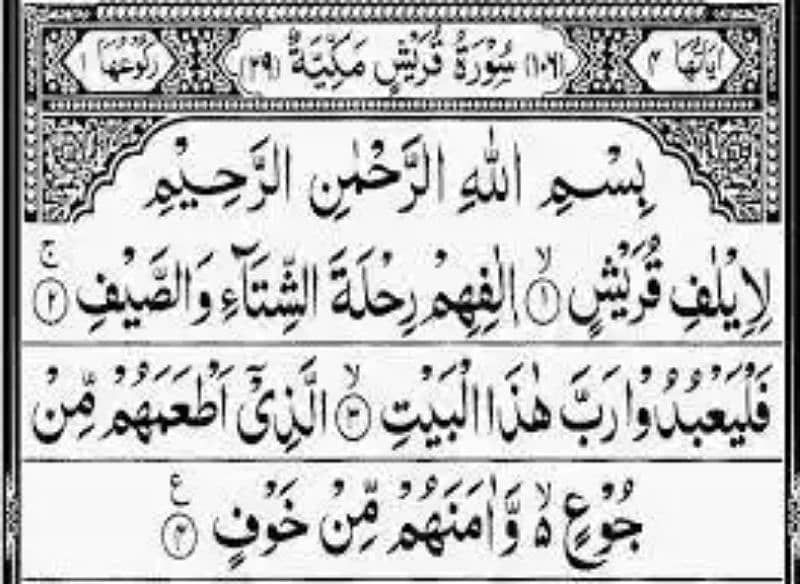 اٰیَاتُهَا ۴ (۱۰۶) سُوْرَةُ قُرَیْشٍ مَكِّیَّةٌ (۲۹) رُكُوْعُهَا ۱
بِسْمِ اللّٰهِ الرَّحْمٰنِ الرَّحِیْمِ
لِاِیْلٰفِ قُرَیْشٍۙ۝۱ اٖلٰفِهِمْ رِحْلَةَ الشِّتَآءِ وَالصَّیْفِۚ۝۲
فَلْیَعْبُدُوْا رَبَّ هٰذَا الْبَیْتِۙ۝۳ الَّذِیْۤ اَطْعَمَهُمْ مِّنْ
جُوْعٍ ەۙ وَّاٰمَنَهُمْ مِّنْ خَوْفٍ۠۝۴ ع